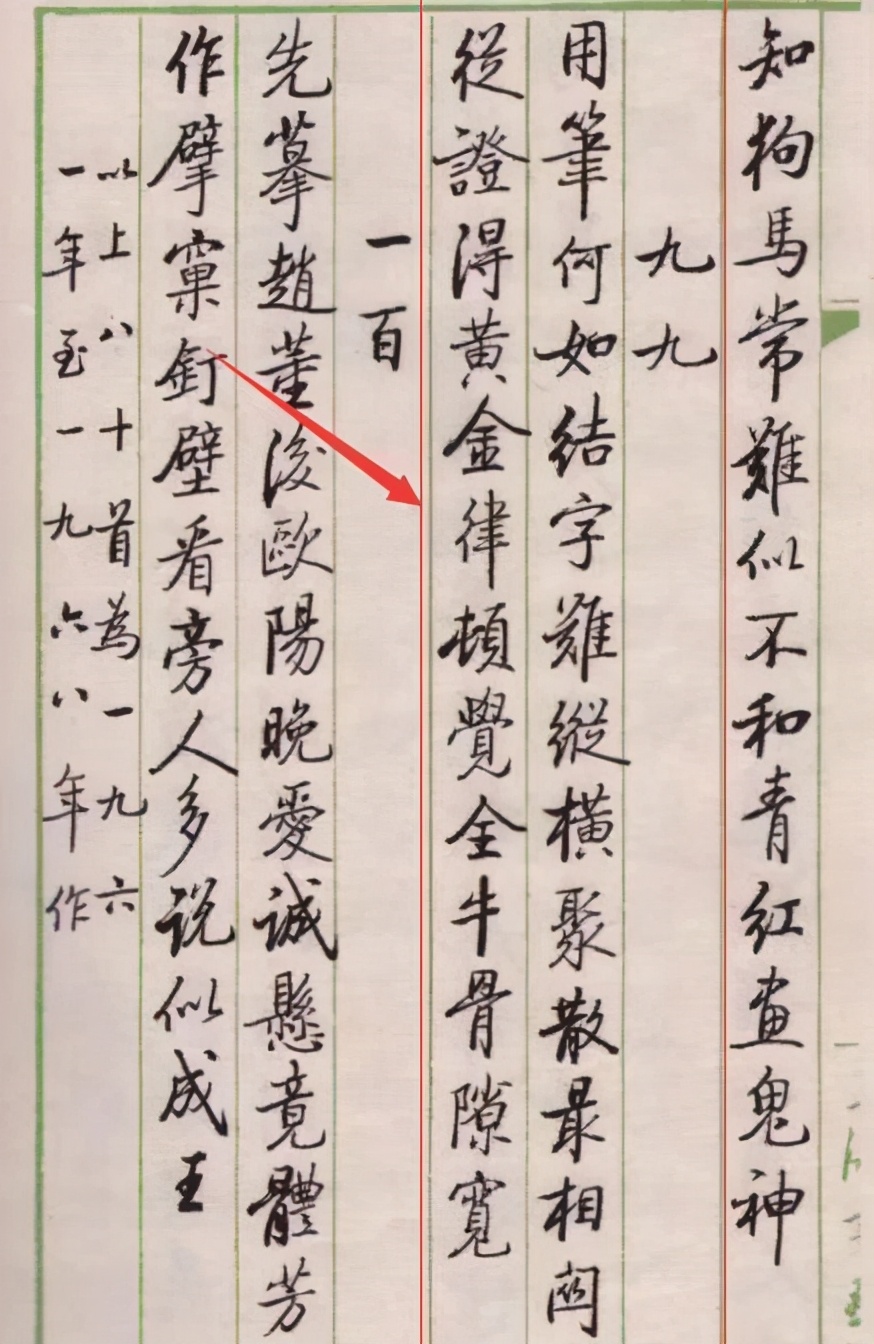 知狗馬常難似不和青紅畫鬼神
九九
用筆何如結字難縱橫聚散最相関
從證得黃金律頓覺全牛骨隙寬
一百
先摹趙董後歐陽晚愛誠懸竟體芳
作擘窠釘壁看旁人多说似成王
以上八十首為一九六
一年至一九六八年作